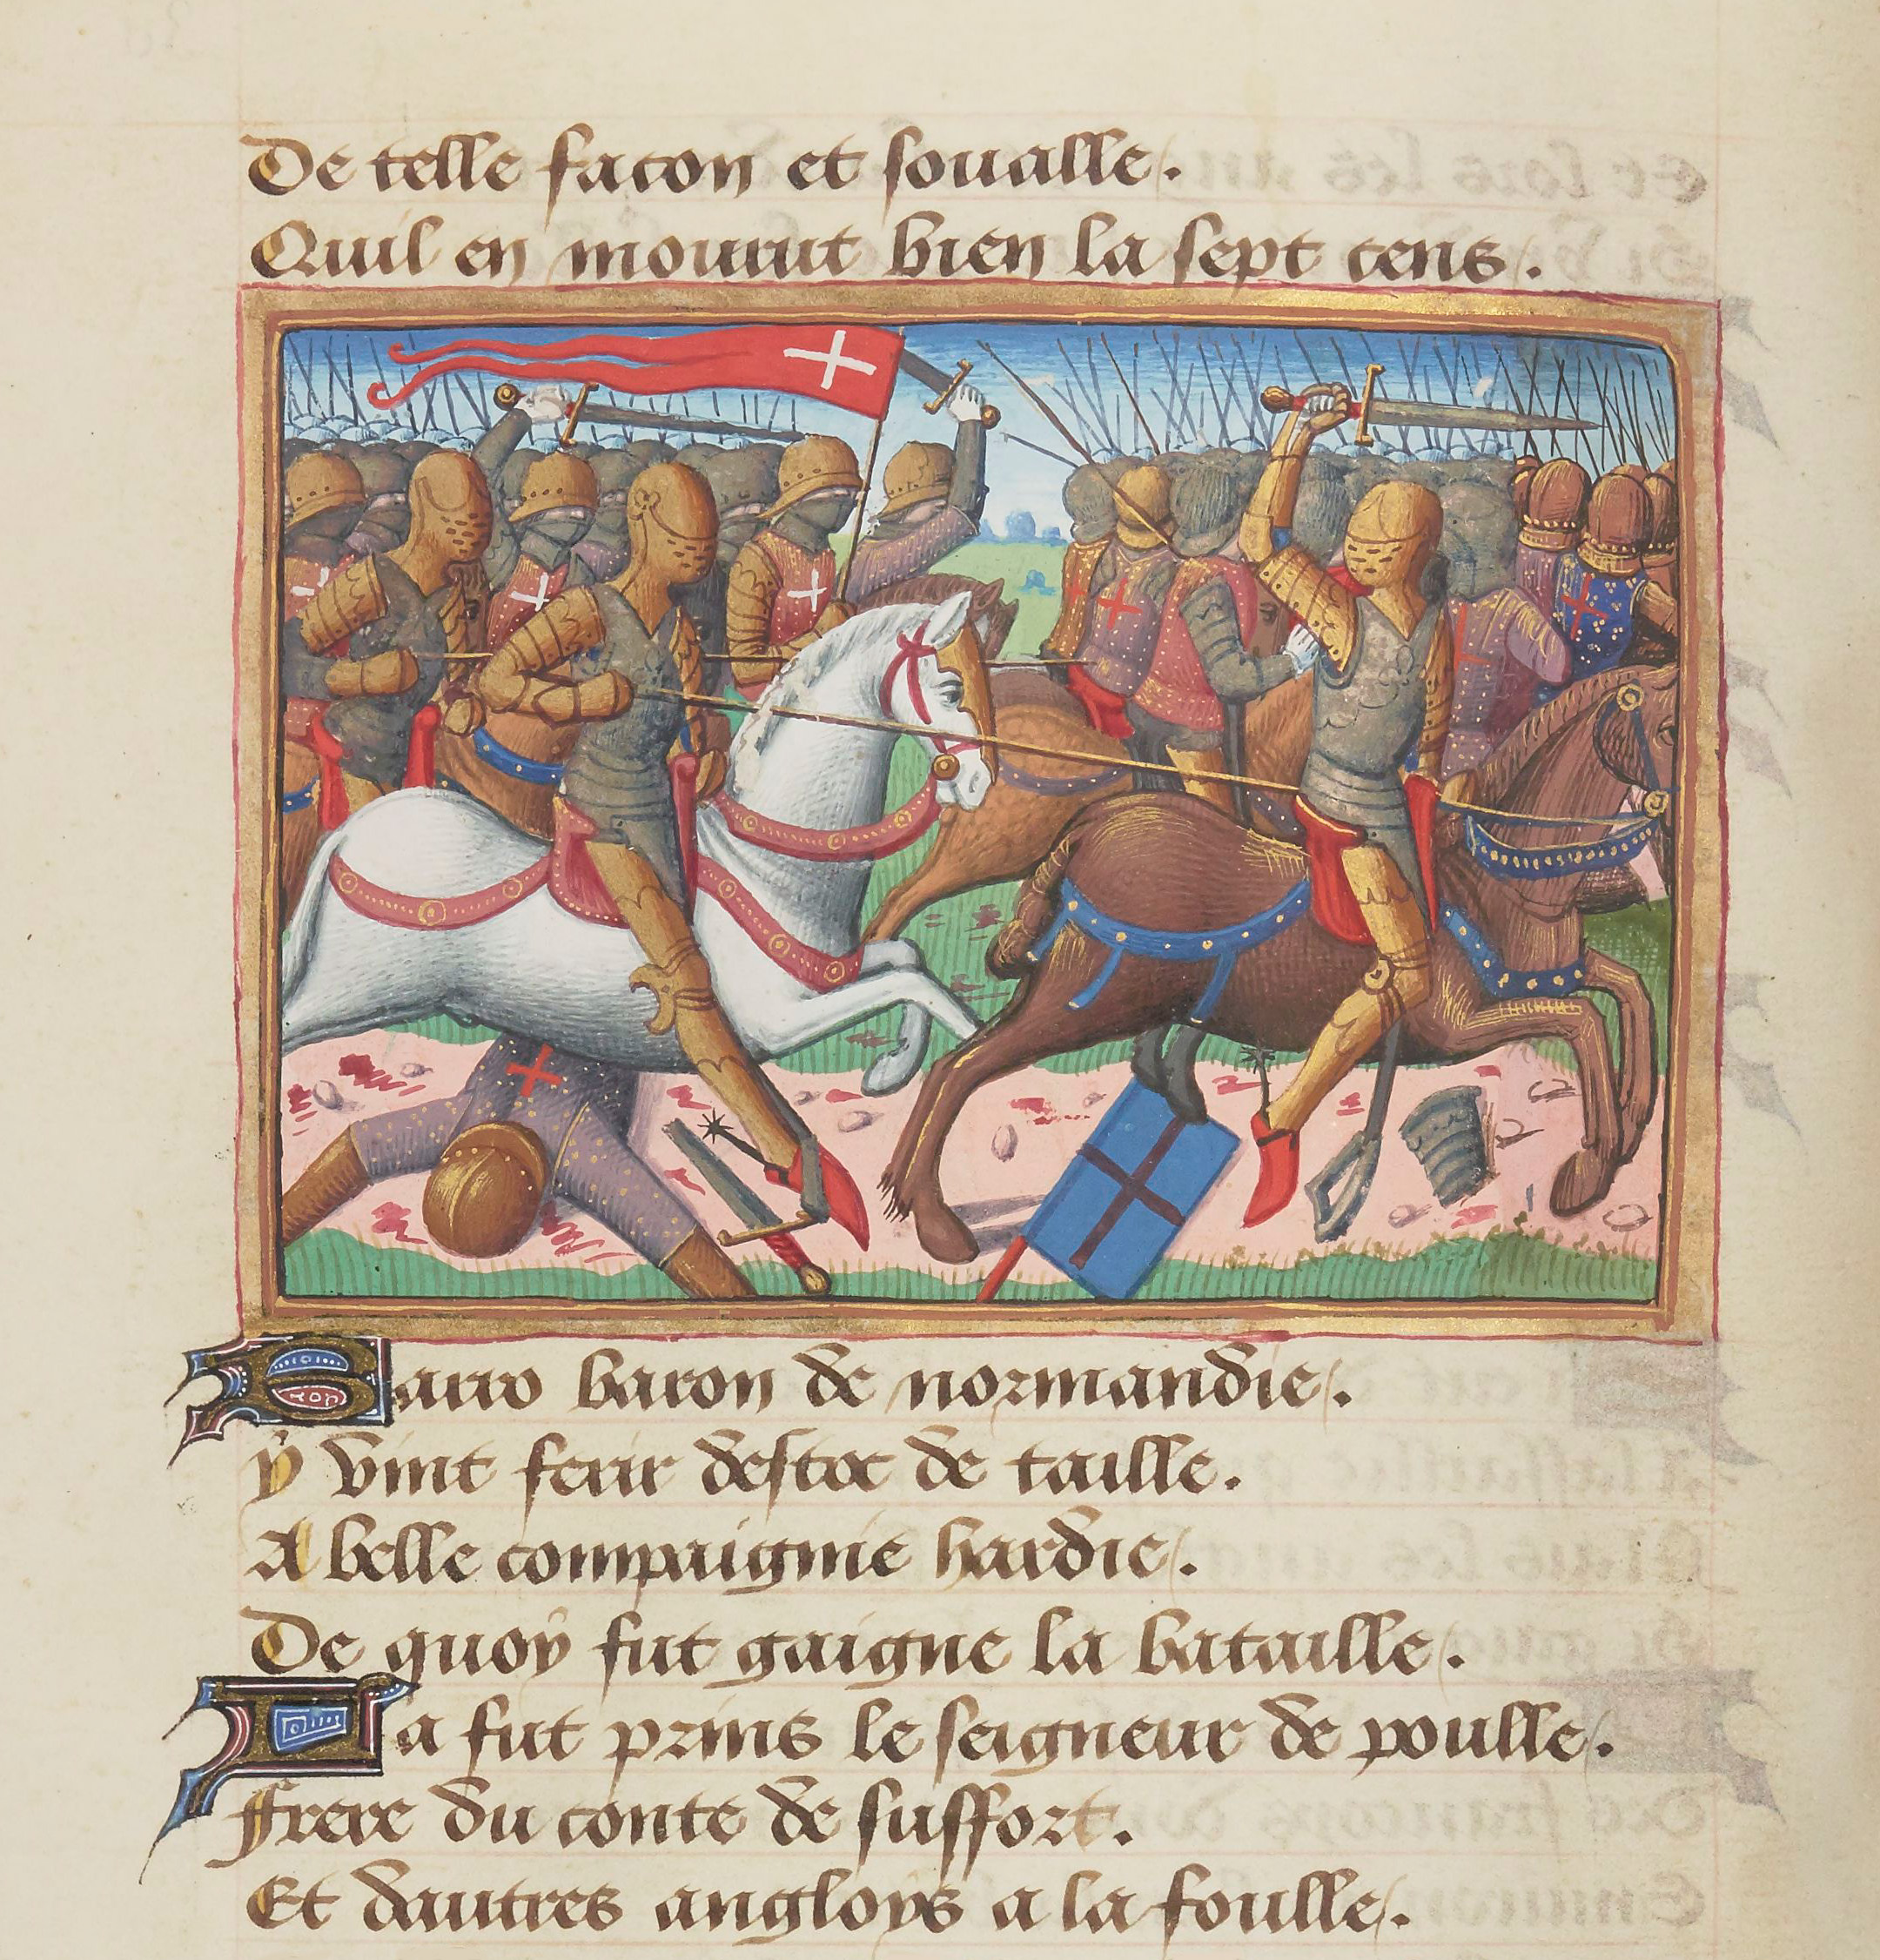 De telle facon et soualle.
Quil en mourut bien la sept cens.
Sauro baron de normandie.
y vint ferir destoc de taille.
A belle compaignie hardie.
De quoy fut gaigne la bataille.
La fut prins le seigneur de poulle.
Frere du conte de suffort.
Et dautres angloys a la foulle.